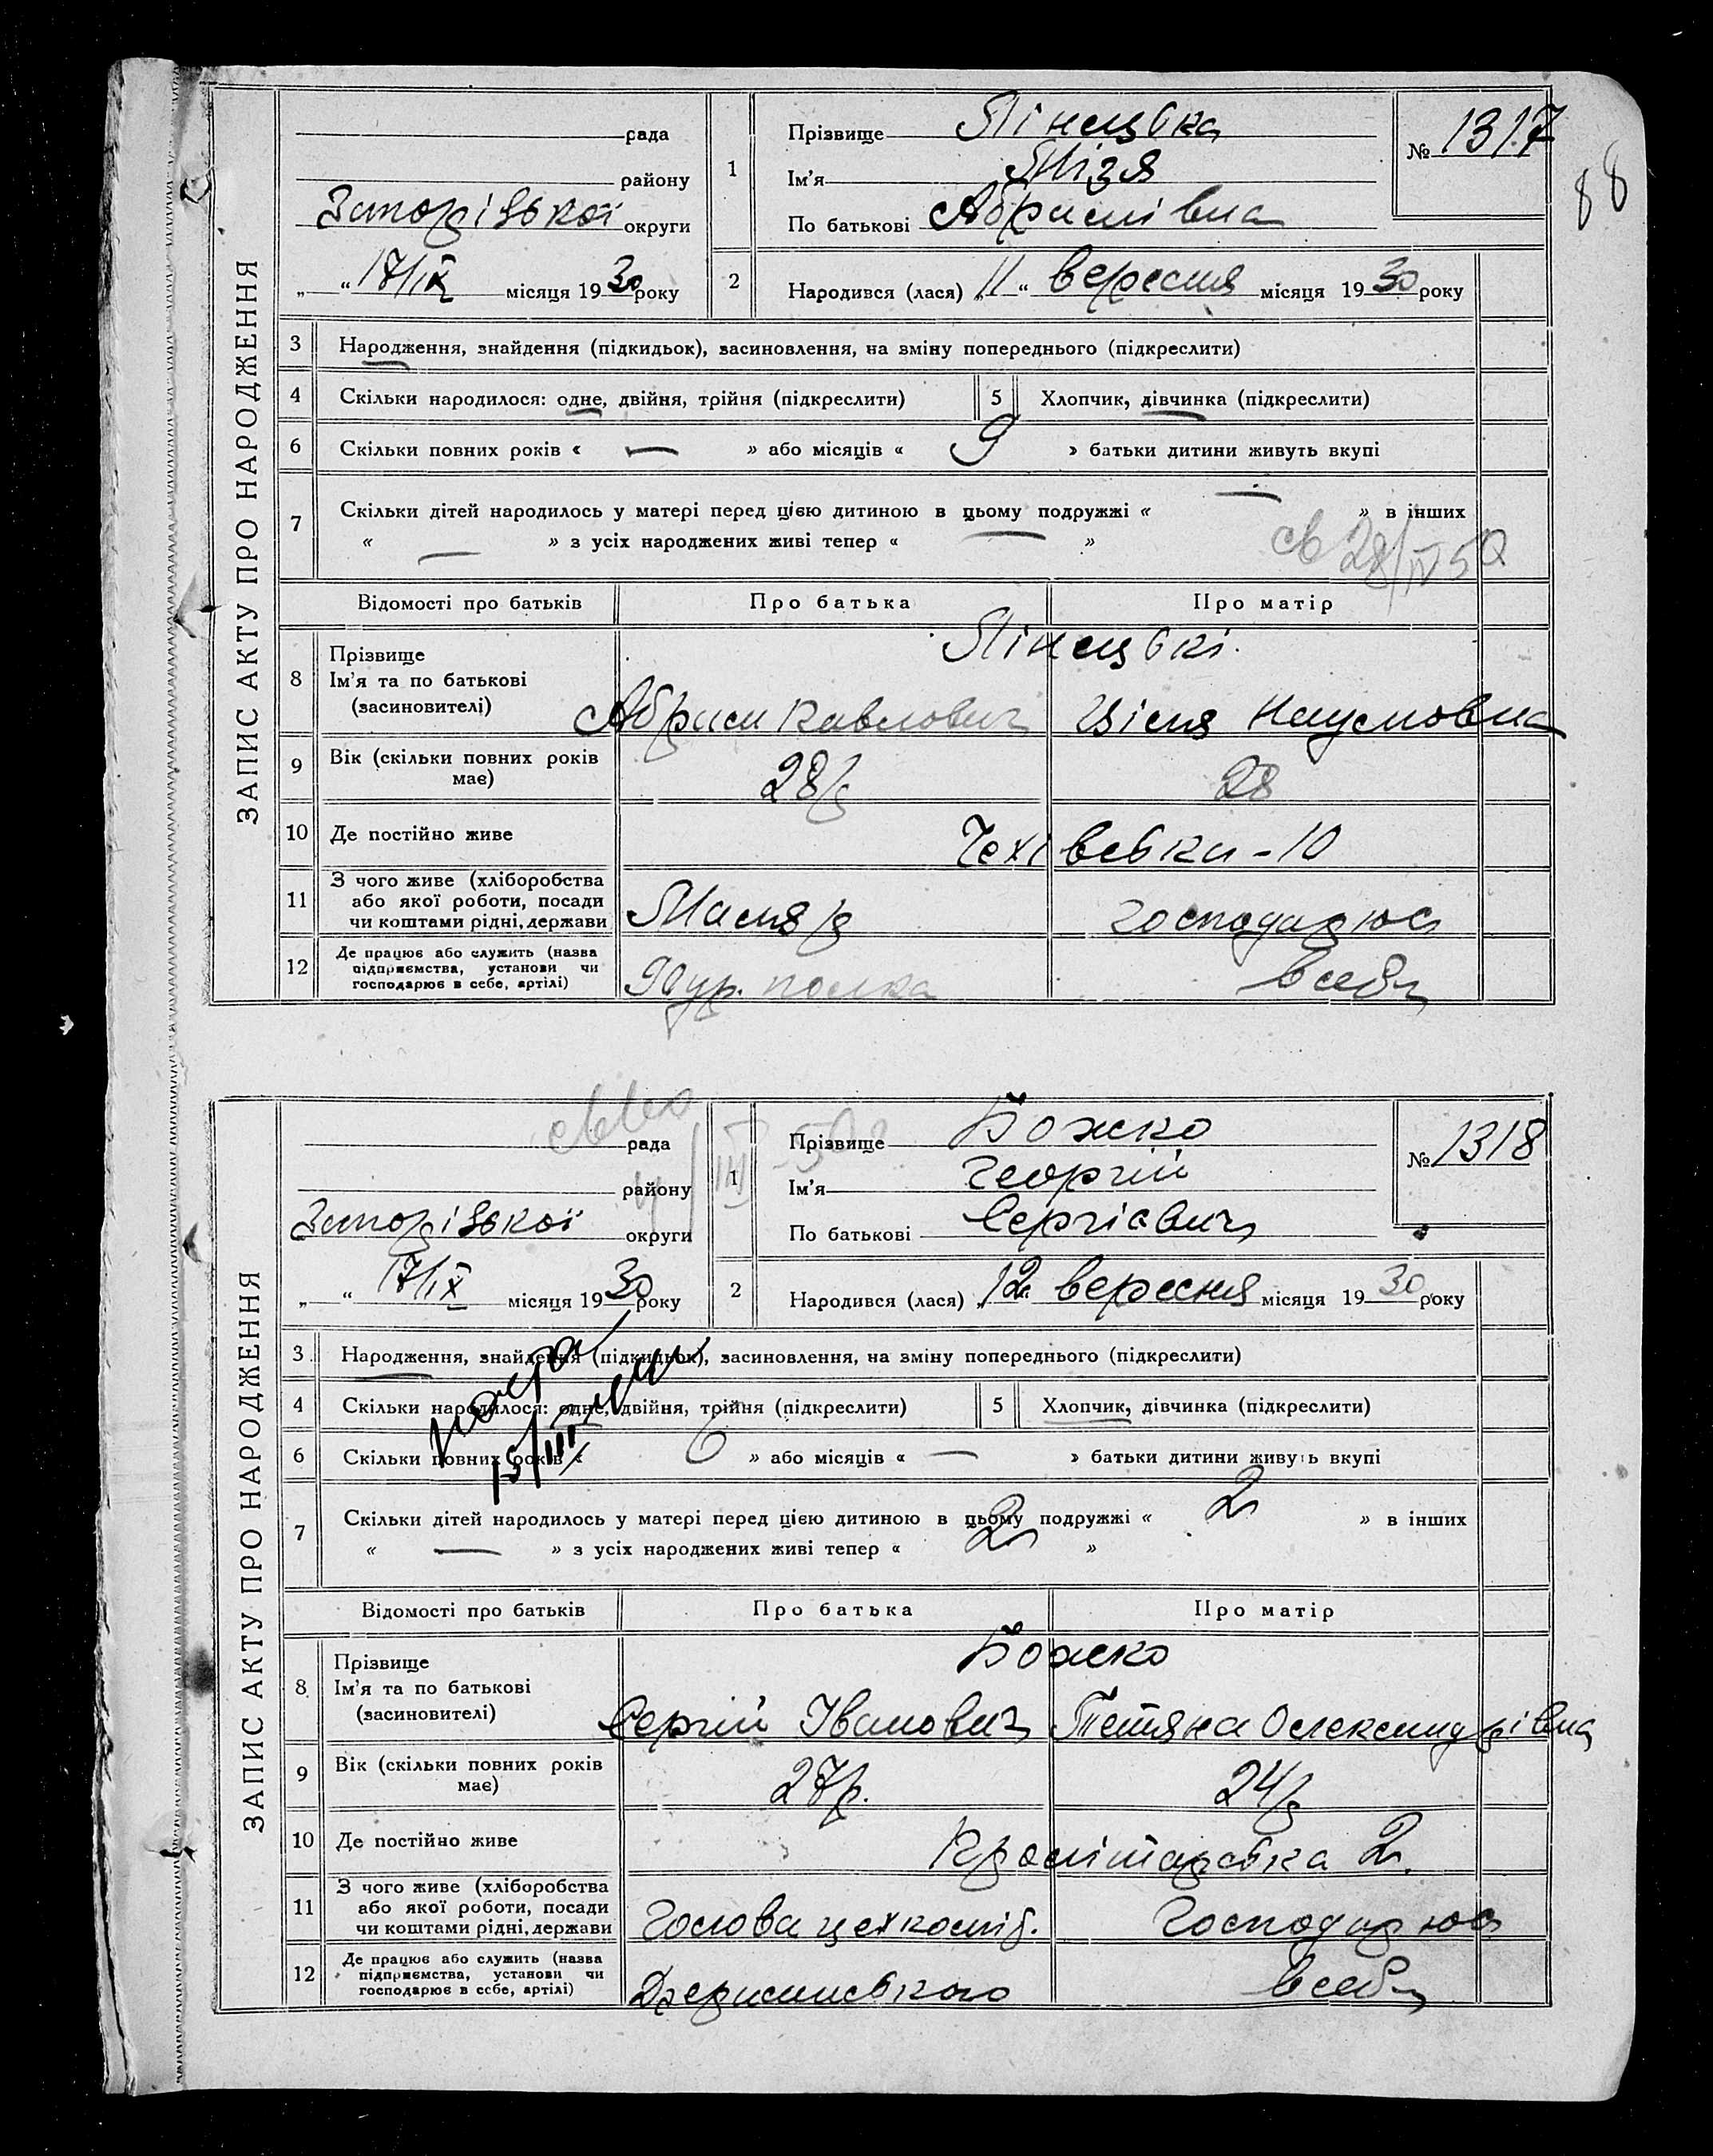 88
ЗАПИС АКТУ ПРО НАРОДЖЕННЯ
рада
району
Запорізької округи
„ “ 17/IX місяця 1930 року
1 Прізвище Лінецька
Ім'я Мізя
По батькові Абрамівна
№ 1317
2 Народився (лася) „ 11 “ вересня місяця 1930 року
3 Народження, знайдення (підкидьок), засиновлення, на зміну попереднього (підкреслити)
4 Скільки народилося: одне, двійня, трійня (підкреслити)
5 Хлопчик, дівчинка (підкреслити)
6 Скільки повних років « — » або місяців « 9 » батьки дитини живуть вкупі
7 Скільки дітей народилось у матері перед цією дитиною в цьому подружжі « — » в інших
« — » з усіх народжених живі тепер « — »
св 28/IV 50
Відомості про батьків Про батька Про матір
8 Прізвище
Ім'я та по батькові
(засиновителі)
Лінецькі
Абрам Павлович Наумовна
9 Вік (скільки повних років має) 28р 28
10 Де постійно живе Чехівська - 10
11 З чого живе (хліборобства або якої роботи, посади чи коштами рідні, держави Маляр господарює
12 Де працює або служить (назва підприємства, установи чи господарює в себе, артілі) полка в себе
ЗАПИС АКТУ ПРО НАРОДЖЕННЯ
рада
району
Запорізької округи
„ “ 17/IX місяця 1930 року
1 Прізвище Божко
Ім'я Георгій
По батькові Сергієвич
№ 1318
2 Народився (лася) „ 12 вересня місяця 1930 року
3 Народження, знайдення (підкидьок), засиновлення, на зміну попереднього (підкреслити)
4 Скільки народилося: одне, двійня, трійня (підкреслити)
5 Хлопчик, дівчинка (підкреслити)
6 Скільки повних років « 6 » або місяців « — » батьки дитини живуть вкупі
15/III
7 Скільки дітей народилось у матері перед цією дитиною в цьому подружжі « 2 » в інших
« — » з усіх народжених живі тепер « 2 »
Відомості про батьків Про батька Про матір
8 Прізвище
Ім'я та по батькові
(засиновителі)
Божко
Сергій Іванович Тетяна Олександрівна
9 Вік (скільки повних років має) 27р. 24р
10 Де постійно живе 2
11 З чого живе (хліборобства або якої роботи, посади чи коштами рідні, держави Голова Господарює
12 Де працює або служить (назва підприємства, установи чи господарює в себе, артілі) Держинського в себе